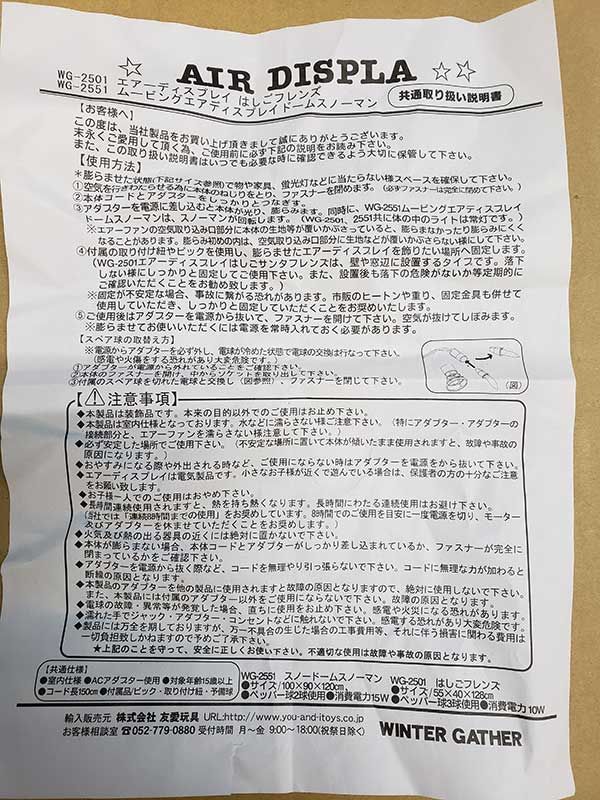 ☆ AIR DISPLA ☆☆
WG-2501 エアーディスプレイ はしごフレンズ
WG-2551 ムービングエアディスプレイドームスノーマン
共通取り扱い説明書
【お客様へ】
この度は、当社製品をお買い上げ頂きまして誠にありがとうございます。
末永くご愛用して頂く為、ご使用前に必ず下記の説明をお読み下さい。
また、この取り扱い説明書はいつでも必要な時に確認できるよう大切に保管して下さい。
【使用方法】
*膨らませた状態(下記サイズ参照)で物や家具、蛍光灯などに当たらない様スペースを確保して下さい。
①空気を行きわたらせる為に本体のねじりをとり、ファスナーを閉めます。(必ずファスナーは完全に閉めて下さい。)
②本体コードとアダプターをしっかりとつなぎます。
③アダプターを電源に差し込むと本体が光り、膨らみます。同時に、WG-2551ムービングエアディスプレイ
ドームスノーマンは、スノーマンが回転します。(WG-2501、2551共に体の中のライトは常灯です。)
※エアーファンの空気取り込み口部分に本体の生地等が覆いかぶさっていると、膨らまなかったり膨らみにくく
なることがあります。膨らみ初めの内は、空気取り込み口部分に生地などが覆いかぶさらない様にして下さい。
④付属の取り付け紐やピックを使用し、膨らませたエアーディスプレイを飾りたい場所へ固定します。
(WG-2501エアーディスプレイはしごサンタフレンズは、壁や窓辺に設置するタイプです。落下
しない様にしっかりと固定してご使用下さい。また、設置後も落下の危険がないか等定期的に
ご確認いただくことをお勧め致します。)
※固定が不安定な場合、事故に繋がる恐れがあります。市販のヒートンや重り、固定金具も併せて
使用していただき、しっかりと固定していただくことをお奨めいたします。
⑤ご使用後はアダプターを電源から抜いて、ファスナーを開けて下さい。空気が抜けてしぼみます。
※膨らませてお使いいただくには電源を常時入れておく必要があります。
【スペア球の取替え方】
※電源からアダプターを必ず外し、電球が冷めた状態で電球の交換は行なって下さい。
(感電や火傷をする恐れがあり大変危険です。)
①アダプターが電源から外れていることをご確認下さい。
②本体のファスナーを開け、中からソケットを取り出して下さい。
③付属のスペア球を切れた電球と交換し(図参照)、ファスナーを閉じて下さい。
(図)
【⚠注意事項】
◆本製品は装飾品です。本来の目的以外でのご使用はお止め下さい。
◆本製品は室内仕様となっております。水などに濡らさない様ご注意下さい。(特にアダプター・アダプターの
接続部分と、エアーファンを濡らさない様注意して下さい。)
◆必ず安定した場所でご使用下さい。(不安定な場所に置いて本体が傾いたまま使用されますと、故障や事故の
原因になります。)
◆おやすみになる際や外出される時など、ご使用にならない時はアダプターを電源をから抜いて下さい。
◆エアーディスプレイは電気製品です。小さなお子様が近くで遊んでいる場合は、保護者の方の十分なご注意
をお願い致します。
◆お子様一人でのご使用はおやめ下さい。
◆長時間連続使用されますと、熱を持ち熱くなります。長時間にわたる連続使用はお避け下さい。
(当社では「連続8時間までの使用」をお奨めしています。8時間でのご使用を目安に一度電源を切り、モーター
及びアダプターを休ませていただくことをお奨めします。)
◆火気及び熱の出る器具の近くには絶対に置かないで下さい。
◆本体が膨らまない場合、本体コードとアダプターがしっかり差し込まれているか、ファスナーが完全に
閉まっているかをご確認下さい。
◆アダプターを電源から抜く際など、コードを無理やり引っ張らないで下さい。コードに無理な力が加わると
断線の原因となります。
◆本製品のアダプターを他の製品に使用されますと故障の原因となりますので、絶対に使用しないで下さい。
また、本製品には付属のアダプター以外をご使用にならないで下さい。故障の原因となります。
◆電球の故障・異常等が発覚した場合、直ちに使用をお止め下さい。感電や火災になる恐れがあります。
◆濡れた手でジャック・アダプター・コンセントなどに触れないで下さい。感電する恐れがあり大変危険です。
◆製品には万全を期しておりますが、万一不具合の生じた場合の工事費用等、それに伴う損害に関わる費用は
一切負担致しかねますので予めご了承下さい。
★上記のことを守って、安全に正しくお使い下さい。不適切な使用は故障や事故の原因となります。
【共通仕様】
●室内仕様 ●ACアダプター使用 ●対象年齢15歳以上
●コード長150cm ●付属品/ピック・取り付け紐・予備球
WG-2551 スノードームスノーマン
●サイズ/100×90×120cm
●ペッパー球2球使用 ●消費電力15W
WG-2501 はしごフレンズ
●サイズ/55×40×128cm
●ペッパー球3球使用 ●消費電力10W
輸入販売元 株式会社 友愛玩具 URL:http://www.you-and-itoys.co.jp
お客様相談室 ☎052-779-0880 受付時間 月〜金 9:00〜18:00(祝祭日除く)
WINTER GATHER